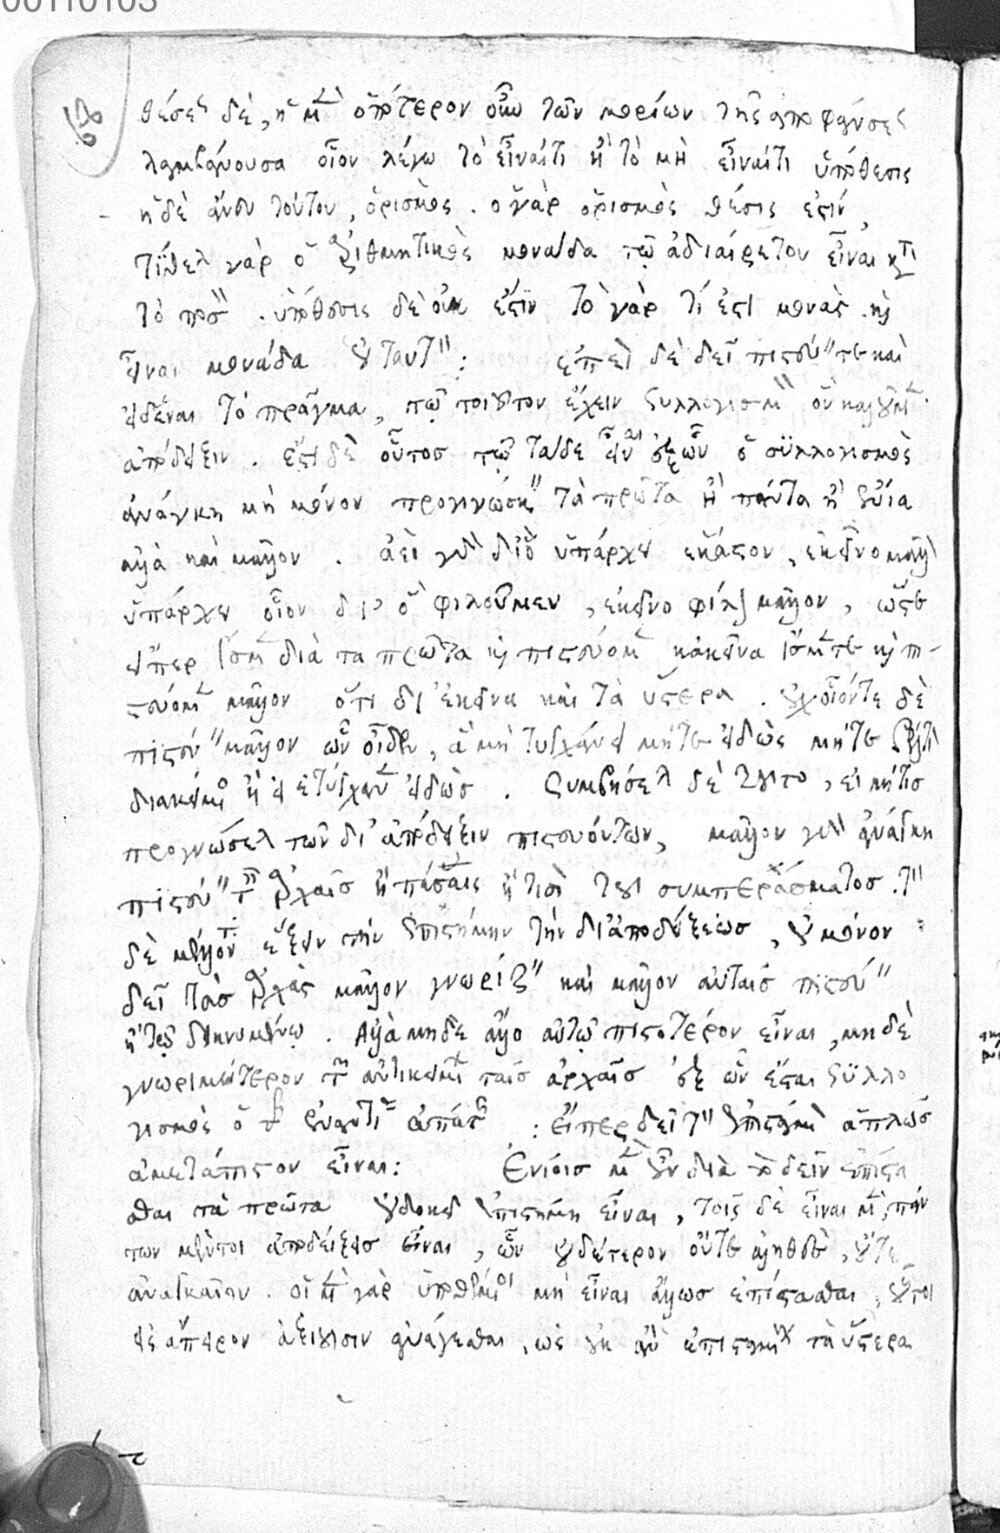 00110103
θέσεως δὲ, ἡ μὲν ὁπότερον οὖν τῶν μορίων τῆς ἀποφάνσεως
λαμβάνουσα οἷον λέγω τὸ εἶναί τι ἢ τὸ μὴ εἶναί τι ὑπόθεσις
ἡ δὲ ἄνευ τούτου, ὁρισμός. ὁ γὰρ ὁρισμὸς θέσις ἐστίν,
τίθεται γὰρ ὁ ἀριθμητικὸς μονάδα τὸ ἀδιαίρετον εἶναι κατὰ
τὸ ποσόν. ὑπόθεσις δὲ οὐκ ἔστιν τὸ γὰρ τί ἐστι μονὰς καὶ
εἶναι μονάδα οὐ ταυτόν: ἐπεὶ δὲ δεῖ πιστεύειν τε καὶ
εἰδέναι τὸ πρᾶγμα, τῷ τοιοῦτον ἔχειν συλλογισμὸν ὃν καλοῦμεν
ἀπόδειξιν. ἔστι δὲ οὗτος τῷ ταδὶ εἶναι ἐξ ὧν ὁ συλλογισμὸς
ἀνάγκη μὴ μόνον προγινώσκειν τὰ πρῶτα ἢ πάντα ἢ ἔνια
ἀλλὰ καὶ μᾶλλον. ἀεὶ γὰρ δι' ὃ ὑπάρχει ἕκαστον, ἐκεῖνο μᾶλλον
ὑπάρχει οἷον δι' ὃ φιλοῦμεν, ἐκεῖνο φίλον μᾶλλον, ὥστε
εἴπερ ἴσμεν διὰ τὰ πρῶτα καὶ πιστεύομεν κἀκεῖνα ἴσμεν τε καὶ πι-
στεύομεν μᾶλλον ὅτι δι' ἐκεῖνα καὶ τὰ ὕστερα. οὐχ οἷόν τε δὲ
πιστεύειν μᾶλλον ὧν οἶδεν, ἃ μὴ τυγχάνει μήτε εἰδὼς μήτε βέλτιον
διακείμενος ἢ εἰ ἐτύγχανεν εἰδώς. συμβήσεται δὲ τοῦτο, εἰ μή τις
προγνώσεται τῶν δι' ἀπόδειξιν πιστευόντων, μᾶλλον γὰρ ἀνάγκη
πιστεύειν ταῖς ἀρχαῖς ἢ πάσαις ἢ τισὶ τοῦ συμπεράσματος. τὸν
δὲ μέλλοντα ἕξειν τὴν ἐπιστήμην τὴν δι' ἀποδείξεως, οὐ μόνον
δεῖ τὰς ἀρχὰς μᾶλλον γνωρίζειν καὶ μᾶλλον αὐταῖς πιστεύειν
ἢ τῷ δεικνυμένῳ. ἀλλὰ μηδὲ ἄλλο αὐτῷ πιστότερον εἶναι, μηδὲ
γνωριμώτερον τῶν ἀντικειμένων ταῖς ἀρχαῖς ἐξ ὧν ἔσται συλλο
γισμὸς ὁ τῆς ἐναντίας ἀπάτης: εἴπερ δεῖ τὸν ἐπιστάμενον ἁπλῶς
ἀμετάπιστον εἶναι: Ἐνίοις μὲν οὖν διὰ τὸ δεῖν ἐπίστα
σθαι τὰ πρῶτα οὐ δοκεῖ ἐπιστήμη εἶναι, τοῖς δὲ εἶναι μὲν, πάν
των μέντοι ἀποδείξεις εἶναι, ὧν οὐδέτερον οὔτε ἀληθὲς, οὔτε
ἀναγκαῖον. οἱ μὲν γὰρ ὑποθέμενοι μὴ εἶναι ἄλλως ἐπίστασθαι, οὗτοι
εἰς ἄπειρον ἀξιοῦσιν ἀνάγεσθαι, ὡς οὐκ ἂν ἐπισταμένους τὰ ὕστερα